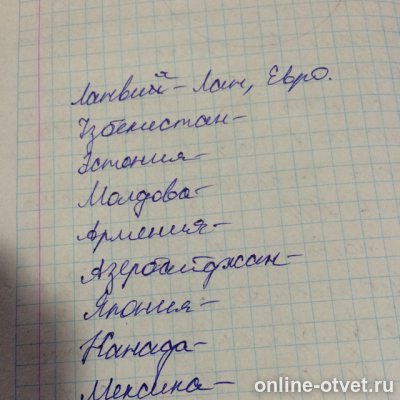 Латвия - Лат, Евро.
Узбекистан -
Эстония -
Молдова -
Армения -
Азербайджан -
Япония -
Канада -
Мексика -
online-otvet.ru